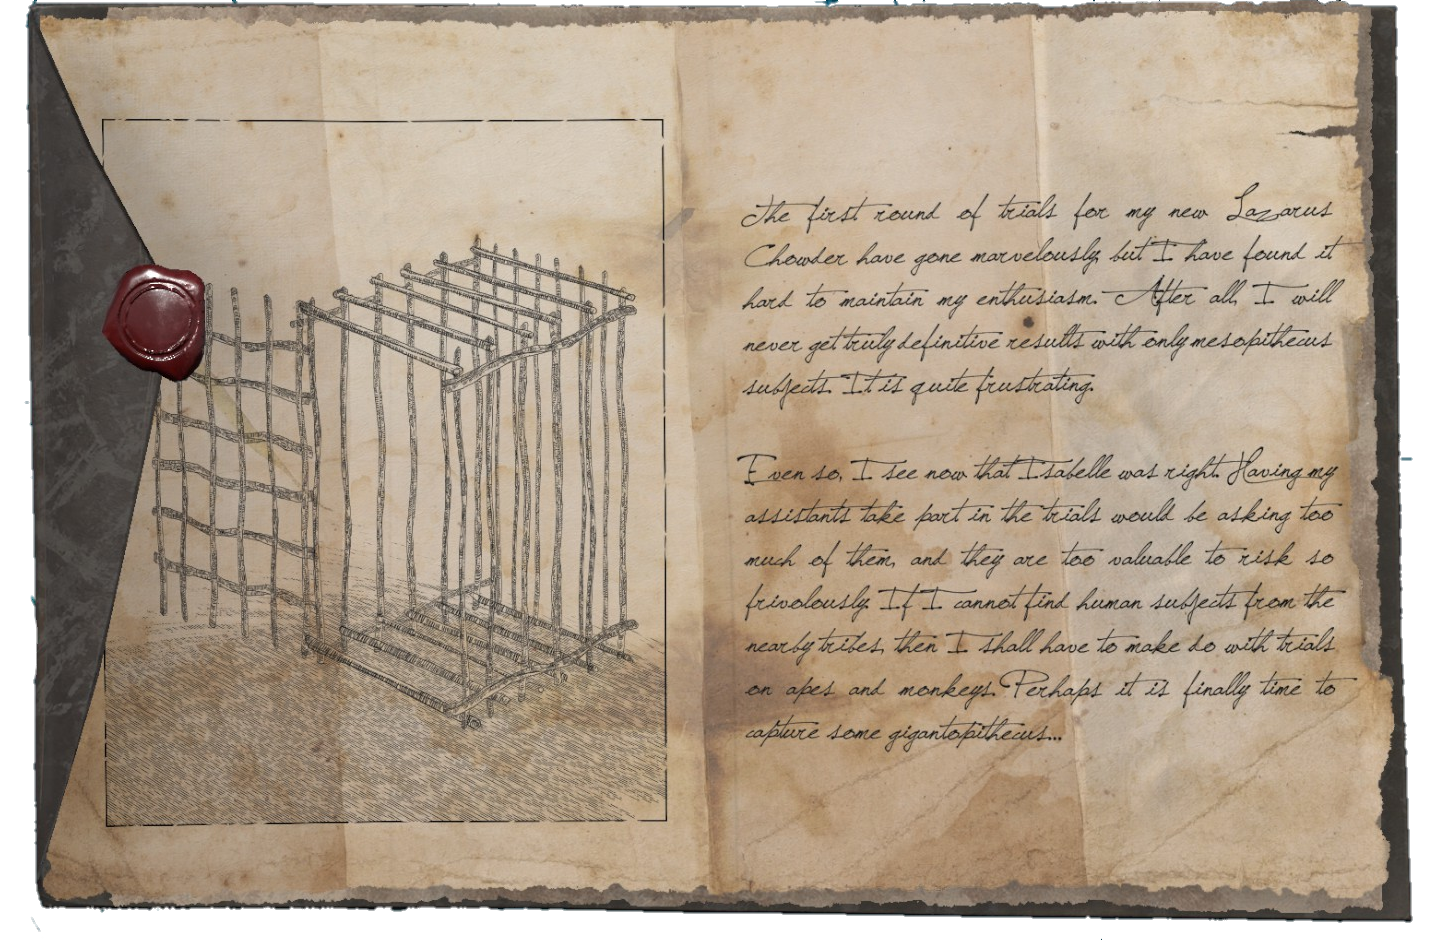 The first round of trials for my new Lazarus
Chowder have gone marvelously, but I have found it
hard to maintain my enthusiasm. After all, I will
never get truly definitive results with only mesopithecus
subjects. It is quite frustrating.
Even so, I see now that Isabelle was right. Having my
assistants take part in the trials would be asking too
much of them, and they are too valuable to risk so
frivolously. If I cannot find human subjects from the
nearby tribes, then I shall have to make do with trials
on apes and monkeys. Perhaps it is finally time to
capture some gigantopithecus...